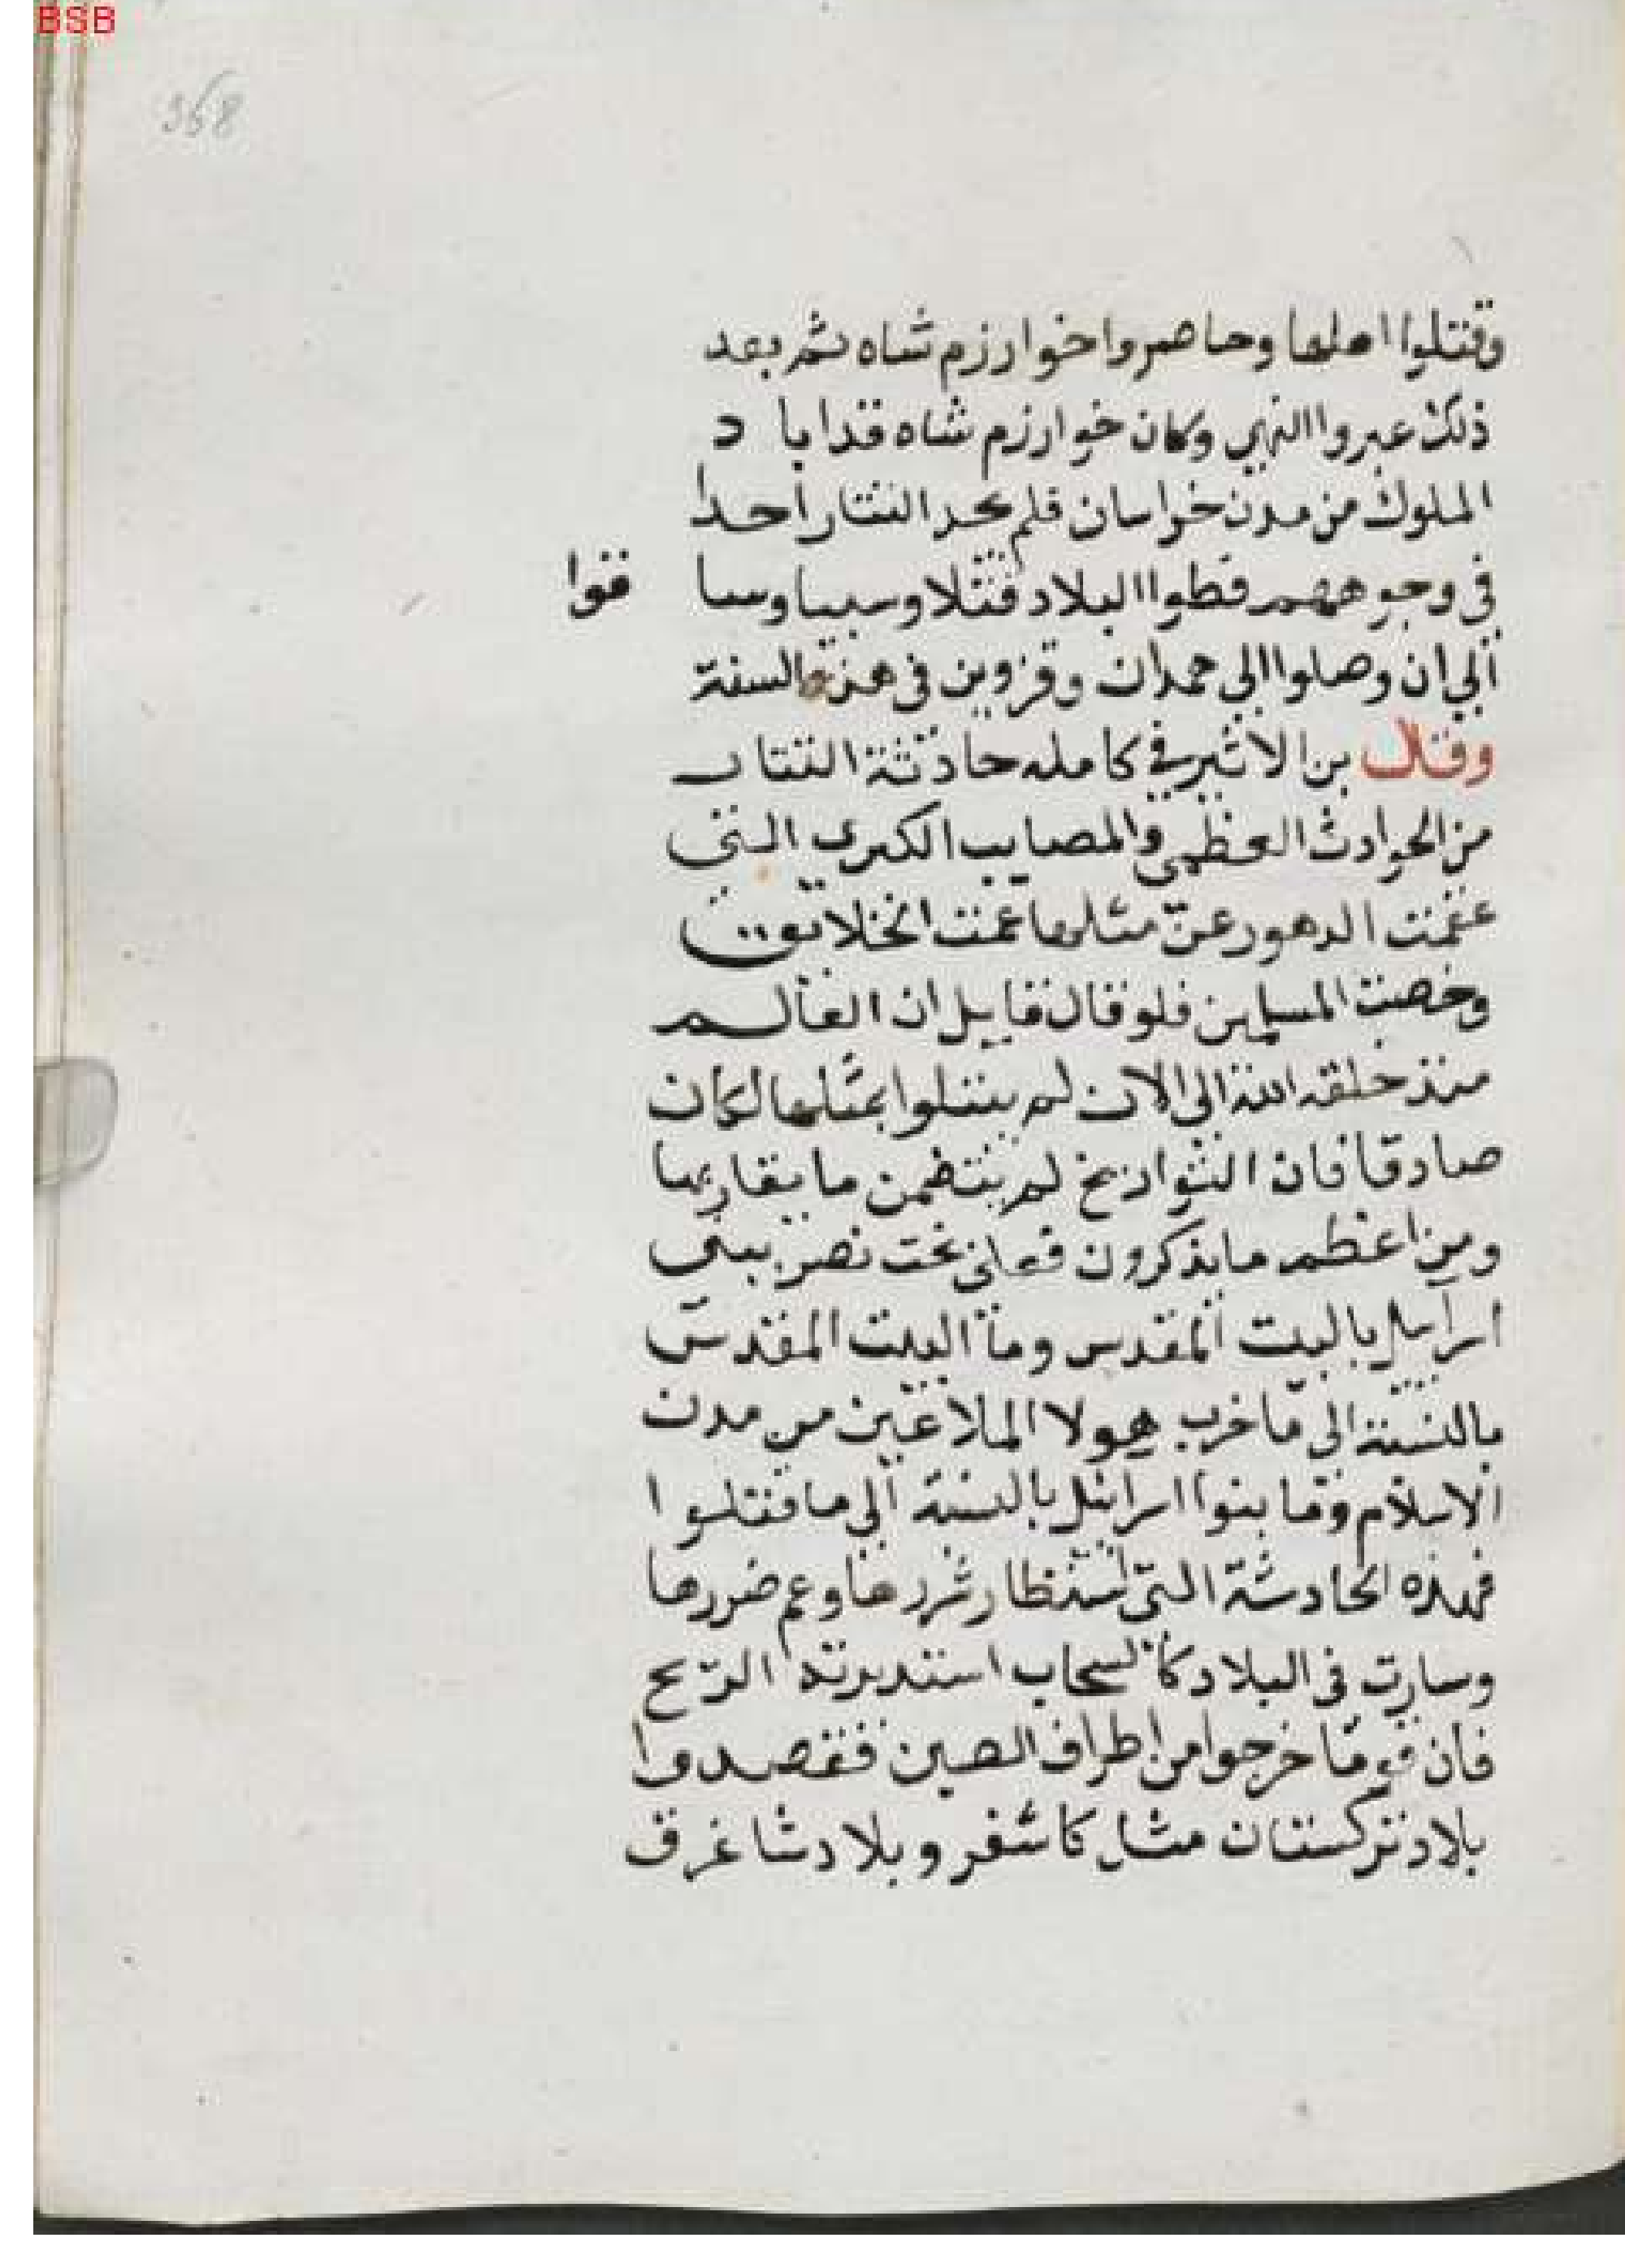 BSB
368
وقتلوا اهلها وحاصروا خوارزم شاه ثم بعد
ذلك عبروا النهر وكان خوارزم شاه قد اباد
الملوك من مدن خراسان فلم يجد التتار احدا
في وجوههم فطووا البلاد قتلا وسبيا وساقوا
الي ان وصلوا الي همدان وقزوين في هذه السنة
وقال بن الاثير في كامله حادثة التتار
من الحوادث العظمي والمصايب الكبري التي
عقمت الدهور عن مثلها عمت الخلايق
وخصت المسلمين فلو قال قايل ان العالم
منذ خلقه الله الي الان لم يبتلوا بمثلها لكان
صادقا فان التواريخ لم تتضمن ما يقاربها
ومن اعظم ما يذكرون فعل بخت نصر ببني
اسراييل بالبيت المقدس وما البيت المقدس
بالنسبة الي ما خرب هولا الملاعين من مدن
الاسلام وما بنوا اسرائيل بالنسبة الي ما قتلوا
فهذه الحادثة التي استطار شررها وعم ضررها
وسارت في البلاد كالسحاب استدبرته الريح
فان قوما خرجوا من اطراف الصين فقصدوا
بلاد تركستان مثل كاشغر وبلاد شاغرق